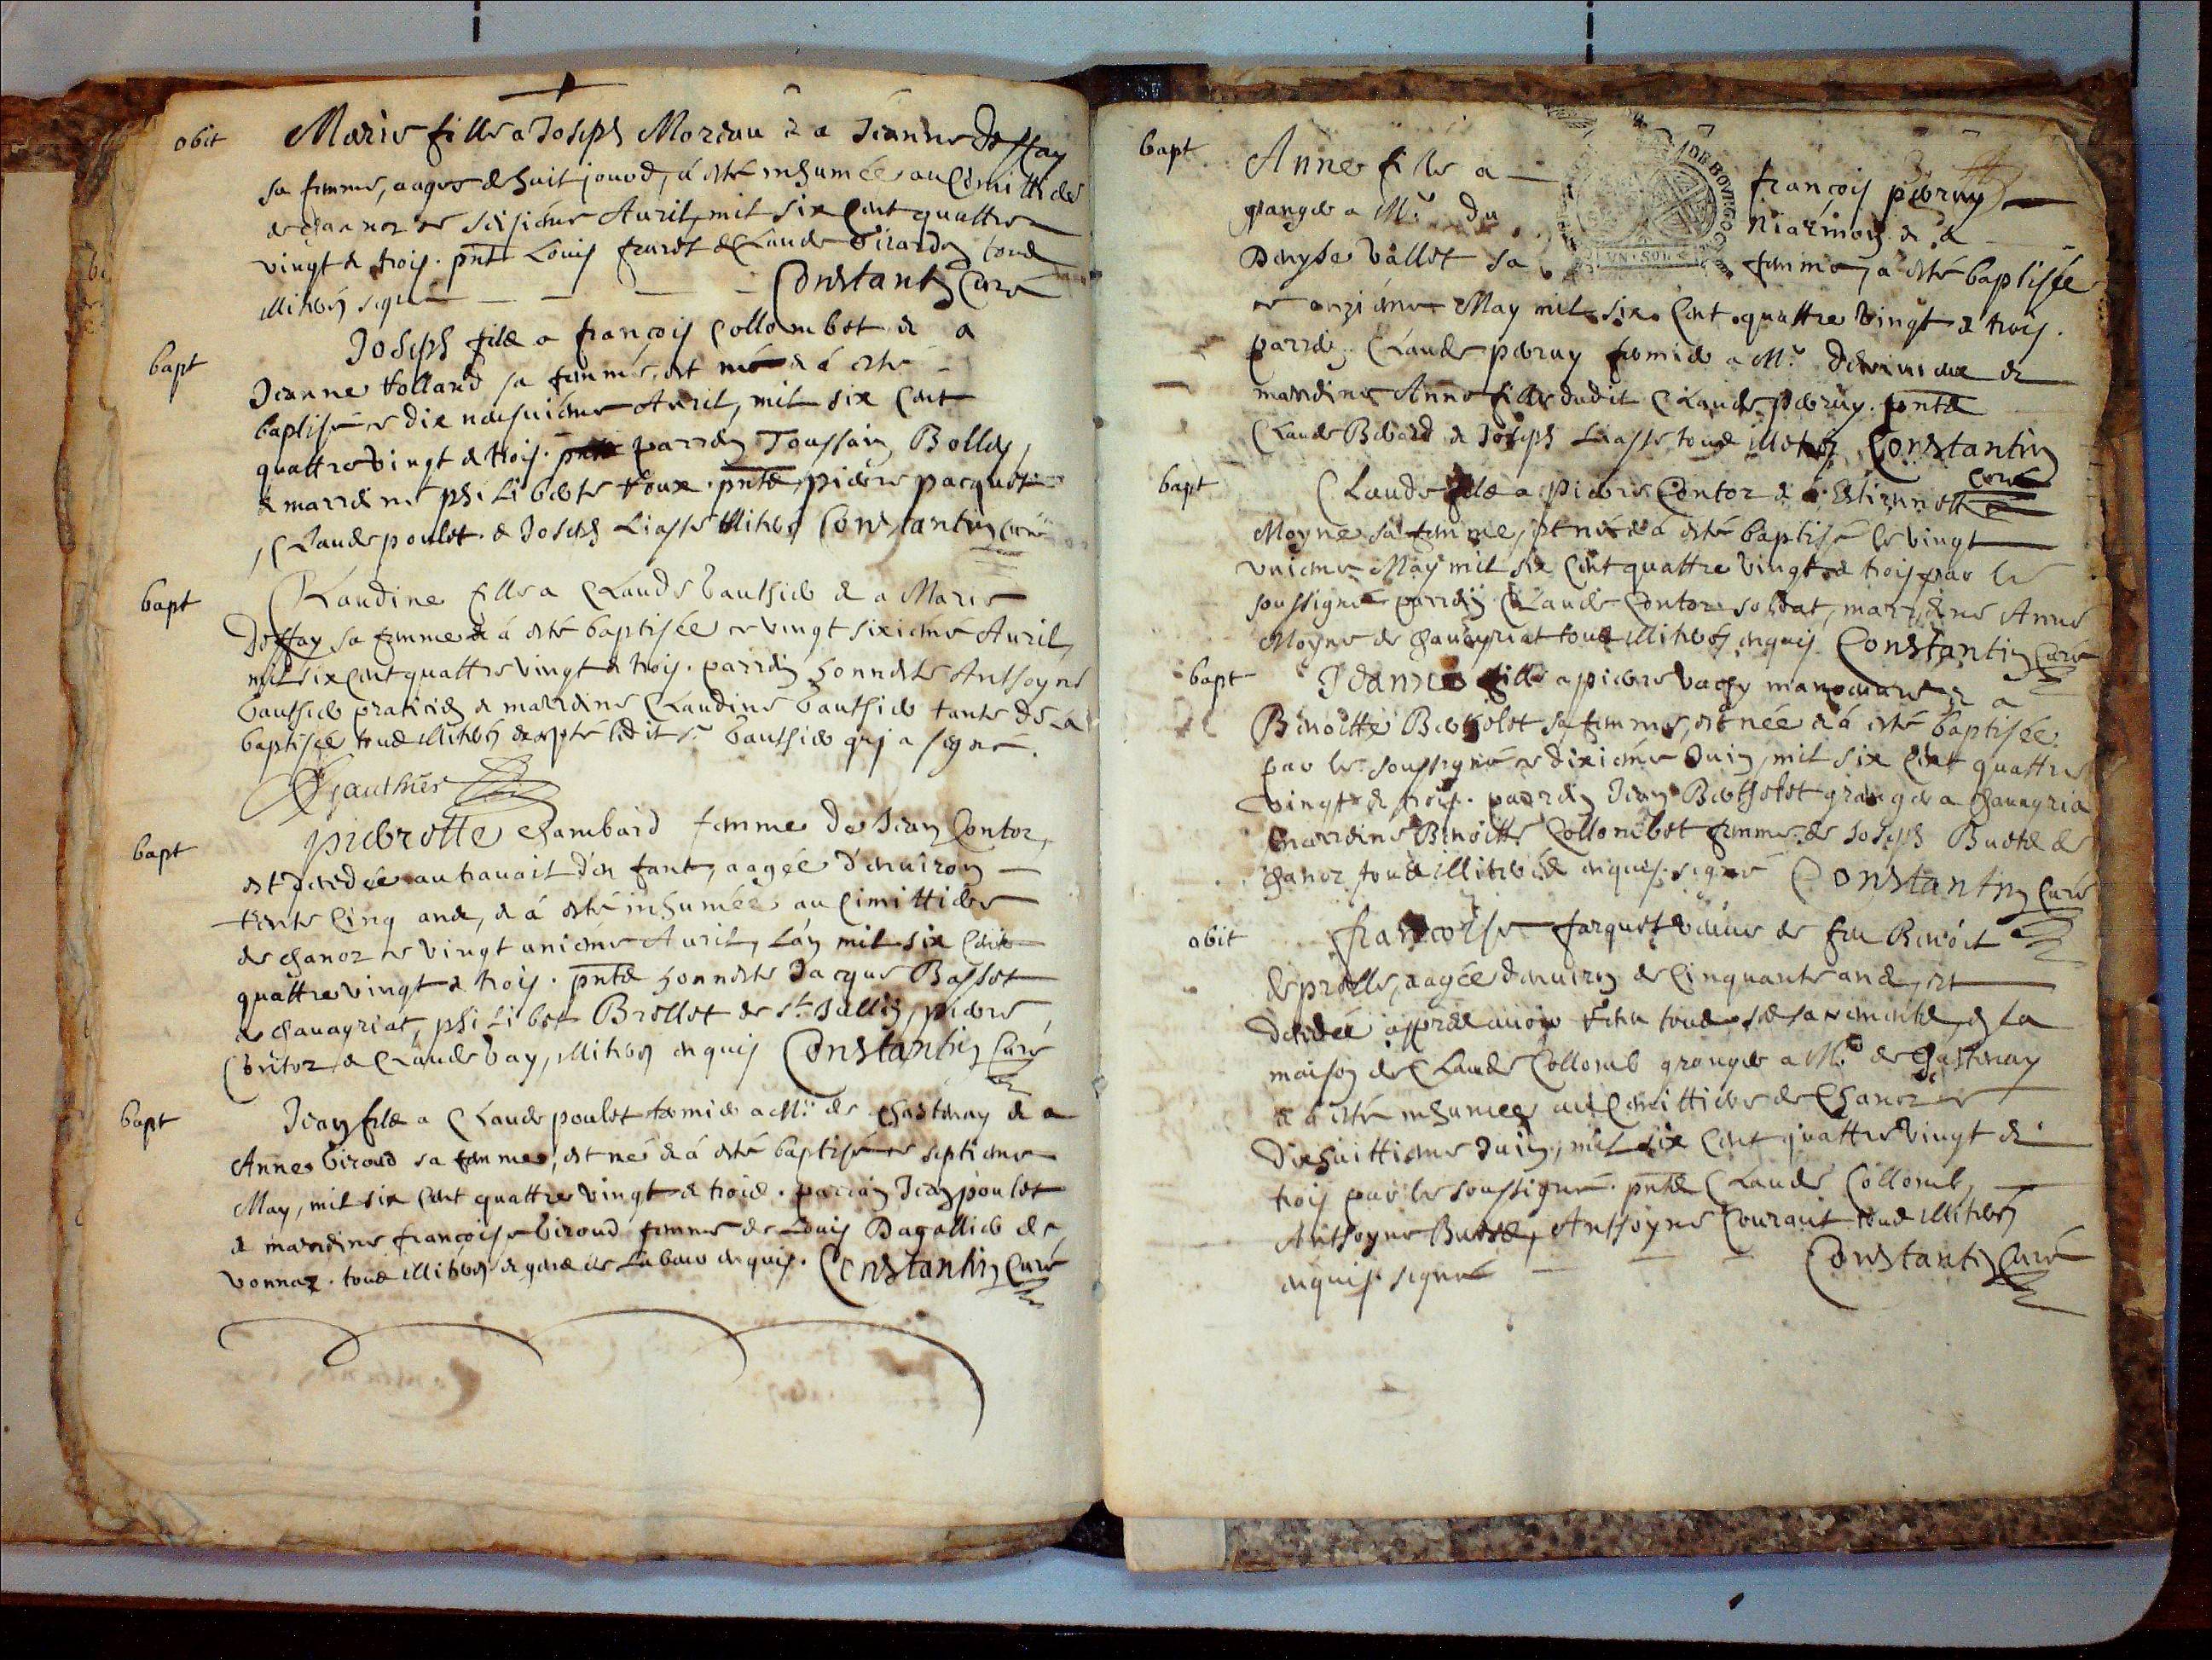 obit
Marie fille a Joseph Moreau & a Jeanne Deffay
sa femme, aagee de huit jours, a esté inhumée au Cimittiere
de chanoz ce seisieme Auril, mil six Cent quattre
vingt & trois. pnts Louis & Claude Girardon tous
illiterés signé Constantin Curé
bapt
Joseph fils a françois Collombet & a
Jeanne Volland sa femme, est né & á esté
baptisé ce dix neufuieme Auril, mil six Cent
quattre vingt & trois. parrein Toussain Bolley,
& marreine philiberte Roux. pnts, pierre pacquet
Claude poulet. & Joseph Liasse illiterés Constantin Curé
bapt
Claudine fille a Claude Gauthier & a Marie
Deffay sa femme & á esté baptisée ce vingt sixieme Auril,
mil six Cent quattre vingt & trois. parrein honneste Anthoyne
Gauthier praticien & marreine Claudine Gauthier tante de la
baptisée tous illiterés excepté ledit sr Gauthier quj a signé.
Gauthier
bapt
pierrette chambard femme de Jean Contor,
est decedée au trauail d'enfant, aagée d'enuiron
trente Cinq ans, & á esté inhumée au Cimittiere
de chanoz ce vingt unieme Auril, l'an mil six Cent
quattre vingt & trois. pnts honneste Jacque Basset
de chauayriat, philibert Brellet de St Jullin, pierre
Contor, & Claude Gay, illiterés enquis Constantin Curé
bapt
Jean fils a Claude poulet fermier a Mr de Chastenay & a
Anne Giroud sa femme, est né & á esté baptisé ce septieme
May, mil six Cent quattre vingt & trois. parrein Jean poulet
& marreine françoise Giroud femme de Louis Dagallier de
vonnaz. tous illiterés & gens de Labeur enquis. Constantin Curé
bapt
Anne fille a françois perruy
granger a Mr Du & a
Denyse Vallet sa femme, a esté baptisée
ce onzieme May mil six Cent quattre vingt & trois.
parrein Claude perruy fermier a Mr &
marreine Anne fille dudit Claude perruy. pnts
Claude Berard & Joseph Liasse tous illiterés Constantin
Curé
bapt
Claude fils a pierre Contor & a Estiennette
Moyne sa femme, est né & á esté baptisé le vingt
unieme May mil six Cent quattre vingt & trois par le
soussigné parrein Claude Contor soldat, marreine Anne
Moyne de chauayriat tous illiterés enquis Constantin Curé
bapt
Jeanne fille a pierre Vachy manoeuure & a
Benoitte Berthelet sa femme, est née & á esté baptisée
par le soussigné ce dixieme Juin, mil six Cent quattre
vingt & trois. parrein Jean Berthelet granger a chauayria
marreine Benoitte Collombet femme de Joseph Buets de
chanoz tous illiterés enquis. signé Constantin Curé
obit
françoise farquet veuue de feu Benoit
Desprelle, aagée denuiron de Cinquante ans, est
decedée appres auoir receu tous ses sacrements, en la
maison de Claude Collomb granger a Mr de Chastenay
& á esté inhumée au Cimittiere de Chanoz ce
dixhuittieme Juin, mil six Cent quattre vingt &
trois par le soussigné. pnts Claude Collomb,
Anthoyne Buets, Anthoyne Courant tous illiterés
enquis. signé Constantin Curé